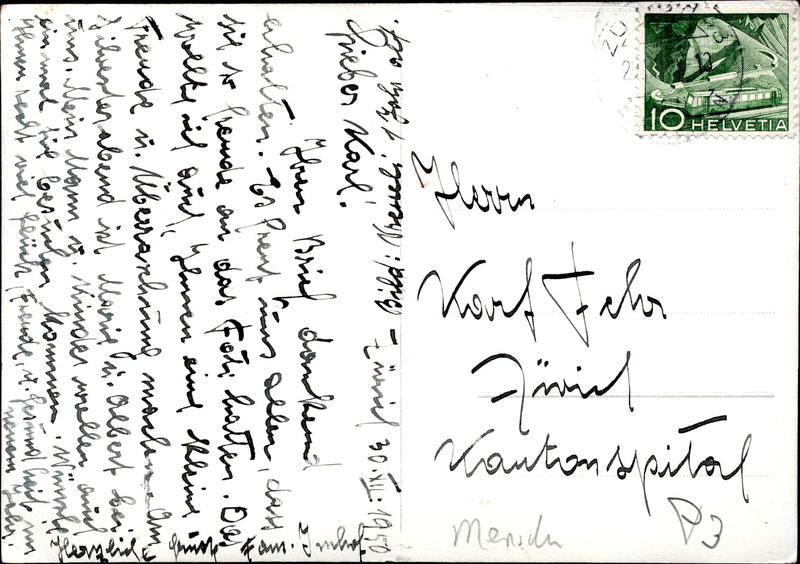 Zürich 30.XII.1950
Lieber Karl!
Ihren Brief dankend
erhalten. Es freut uns allen, dass
sie so Freude an das Foti hatten. Das
wollte ich auch, Ihnen eine kleine
Freude u. Überraschung machen. Am
Silvesterabend ist Marie u. Albert bei
uns. Mein Mann u. Kinder wollen auch
einmal sie besuchen kommen. Wünsche
Ihnen recht viel Glück, Freude, u. Gesundheit im
neuen Jahr
Herzliche Grüsse Fam. Imhof
10 HELVETIA
Herrn
Karl Fehr
Zürich
Kantonsspital
P3